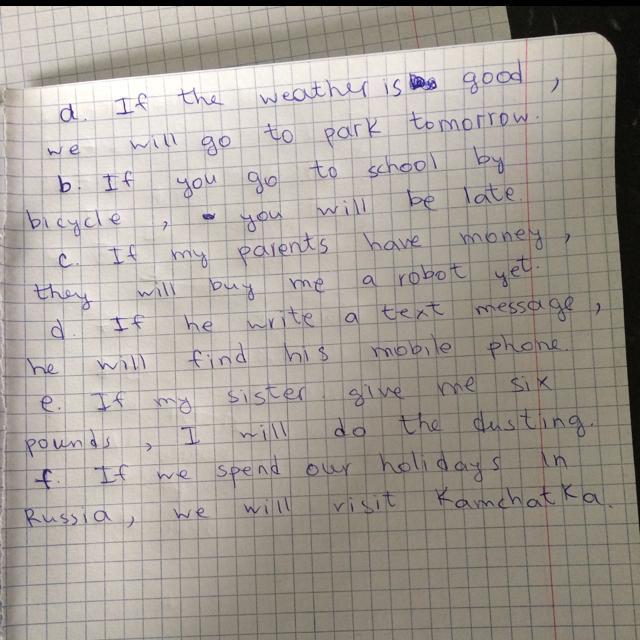 a. If the weather is good,
we will go to park tomorrow.
b. If you go to school by
bicycle, you will be late.
c. If my parents have money,
they will buy me a robot yet.
d. If he write a text message,
he will find his mobile phone.
e. If my sister give me six
pounds, I will do the dusting.
f. If we spend our holidays in
Russia, we will visit Kamchatka.